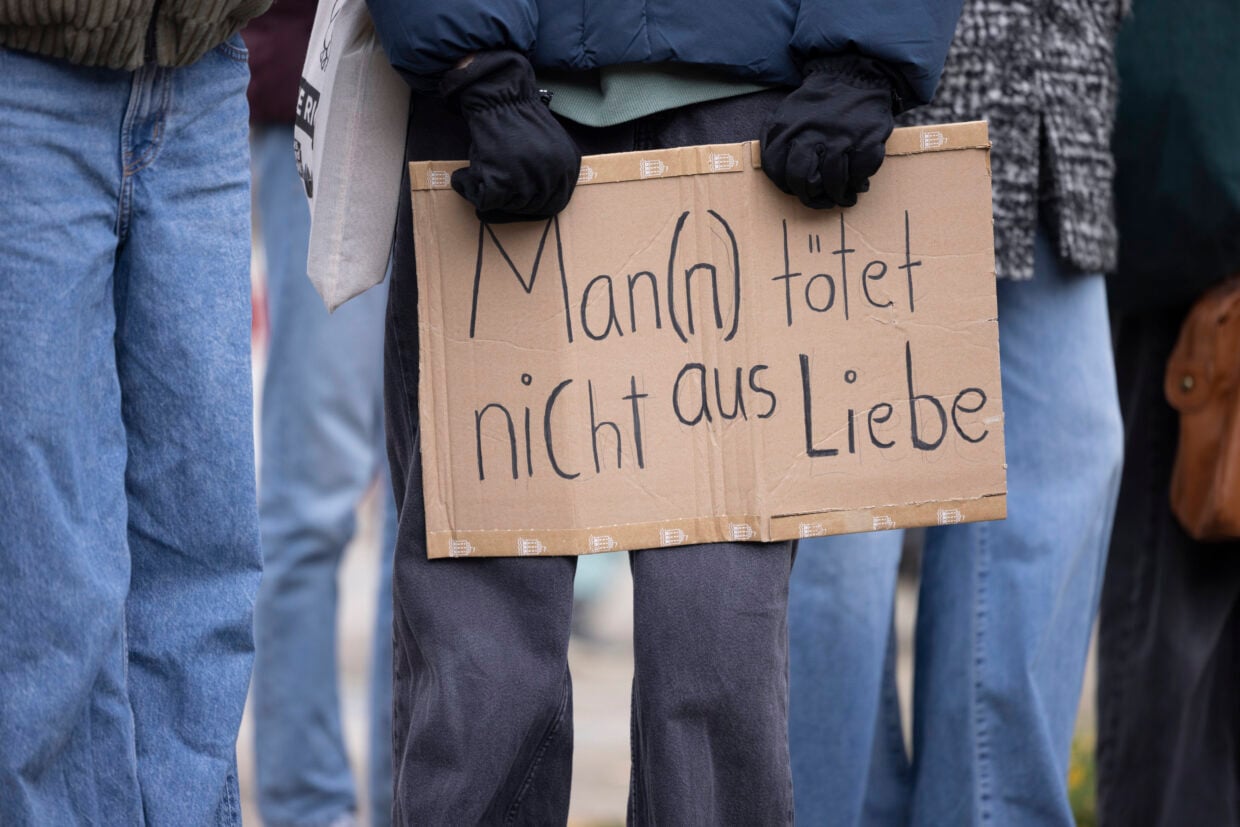 Man(n) tötet
nicht aus Liebe